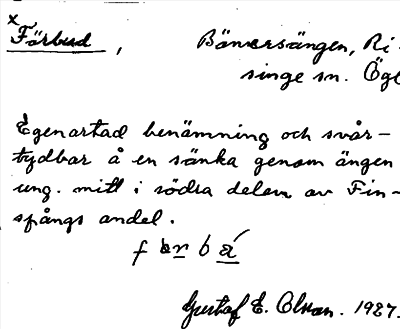 x Förbud, Bönersängen, Ri-
singe sn. Ög
Egenartad benämning och svår-
tydbar å en sänka genom ängen
ung. mitt i södra delen av Fin-
spångs andel.
Gustaf E. Olson. 1927.